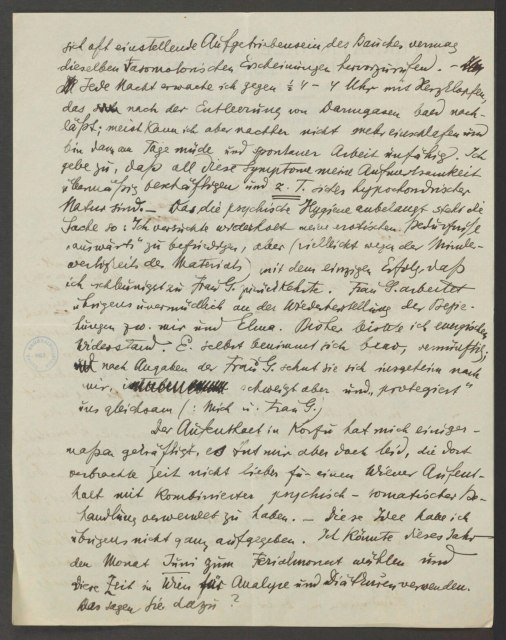 sich oft einstellende Aufgetriebensein des Bauches vermag
dieselben vasomotorischen Erscheinungen hervorzurufen. –
Jede Nacht erwache ich gegen ½ 4 – 4 Uhr mit Herzklopfen,
das nach der Entleerung von Darmgasen bald nach-
läßt; meist kann ich aber nachher nicht mehr einschlafen und
bin dann am Tage müde und spontaner Arbeit unfähig. Ich
gebe zu, daß all diese Symptome meine Aufmerksamkeit
übermäßig beschäftigen und z. T. sicher hypochondrischer
Natur sind. – Was die psychische Hygiene anbelangt steht die
Sache so: Ich versuchte wiederholt meine erotischen Bedürfnisse
„auswärts" zu befriedigen, aber (vielleicht wegen der Minder-
wertigkeit des Materials) mit dem einzigen Erfolg, daß
ich schleunigst zu Frau G. zurückkehrte. Frau G. arbeitet
übrigens unermüdlich an der Wiederherstellung der Bezie-
hungen zw. mir und Elma. Bisher leistete ich energischen
Widerstand. E. selbst benimmt sich brav, vernünftig;
nach Angaben der Frau G. sehnt sie sich insgeheim nach
mir, schweigt aber und „protegiert"
uns gleichsam (: mich u. Frau G.)
Der Aufenthalt in Korfu hat mich einiger-
maßen gekräftigt, es tut mir aber doch leid, die dort
verbrachte Zeit nicht lieber für einen Wiener Aufent-
halt mit kombinierter psychisch-somatischer Be-
handlung verwendet zu haben. – Diese Idee habe ich
übrigens nicht ganz aufgegeben. Ich könnte dieses Jahr
den Monat Juni zum Ferialmonat wählen und
diese Zeit in Wien für Analyse und Diätkuren verwenden.
Was sagen Sie dazu?